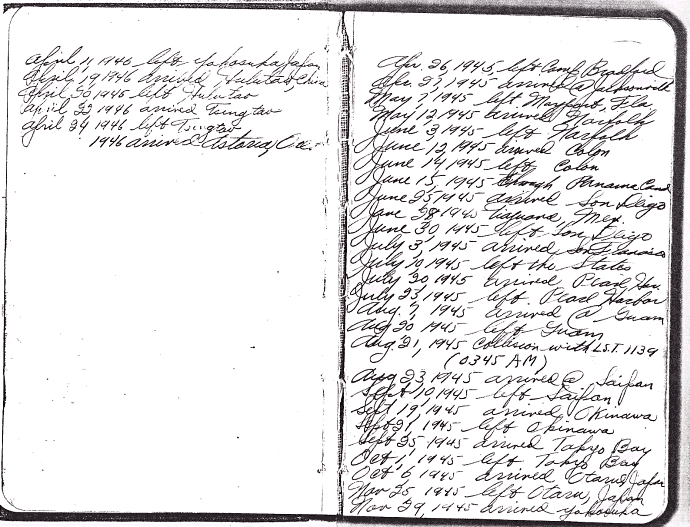 April 11, 1946 left Yokosuka, Japan
April 19 1946 arrived, Hulutao, China
April 20 1946 left Hulutao
April 22, 1946 arrived Tsingtao
April 24 1946 left Tsingtao
1946 arrived Astoria, Ore.
Apr. 26, 1945, left Camp Bradford
Apr. 27, 1945 arrived @ Jacksonville
May 7, 1945 left Mayport, Fla
May 12, 1945 arrived Norfolk
June 3, 1945 left Norfolk
June 12, 1945 arrived Colon
June 14, 1945 left Colon
June 15, 1945 through Panama Canal
June 25, 1945 arrived San Diego
June 28 1945 Tiajuana, Mex.
June 30, 1945 left San Diego
July 3, 1945 arrived San Francisco
July 10, 1945 left the States
July 20, 1945 arrived Pearl Har.
July 23, 1945 left Pearl Harbor
Aug. 7, 1945 arrived @ Guam
Aug 20 1945 left Guam
Aug 21, 1945 Collision with L.S.T. 1139
(0345 AM)
Aug 23, 1945 arrived @ Saipan
Sept 10, 1945 left Saipan
Sept 19, 1945 arrived Okinawa
Sept 21, 1945 left Okinawa
Sept 25 1945 arrived Tokyo Bay
Oct 1, 1945 left Tokyo Bay
Oct 6 1945 arrived Otaru, Japan
Nov 25, 1945 left Otaru, Japan
Nov 29, 1945 arrived Yokosuka